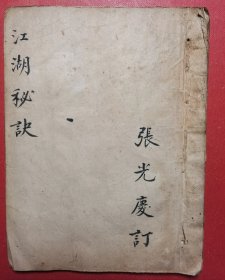 江湖秘訣
張光慶訂